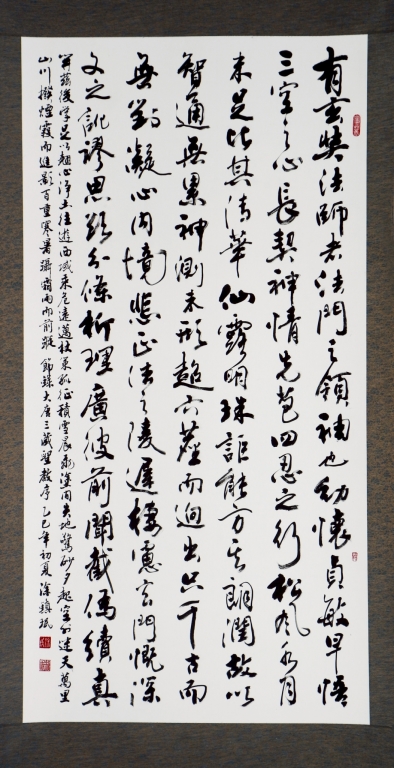 有玄奘法師者法門之領袖也幼懷貞敏早悟
三空之心長契神情先苞四忍之行松風水月
未足比其清華仙露明珠詎能方其朗潤故以
智通無累神測未形超六塵而迥出只千古而
無對凝心內境悲正法之陵遲棲慮玄門慨深
文之訛謬思欲分條析理廣彼前聞截偽續真
開茲後學是以翹心淨土往遊西域乘危遠邁杖策孤征積雪晨飛塗間失地驚砂夕起空外迷天萬里
山川撥煙霞而進影百重寒暑躡霜雨而前蹤 節錄大唐三藏聖教序 乙巳年初夏